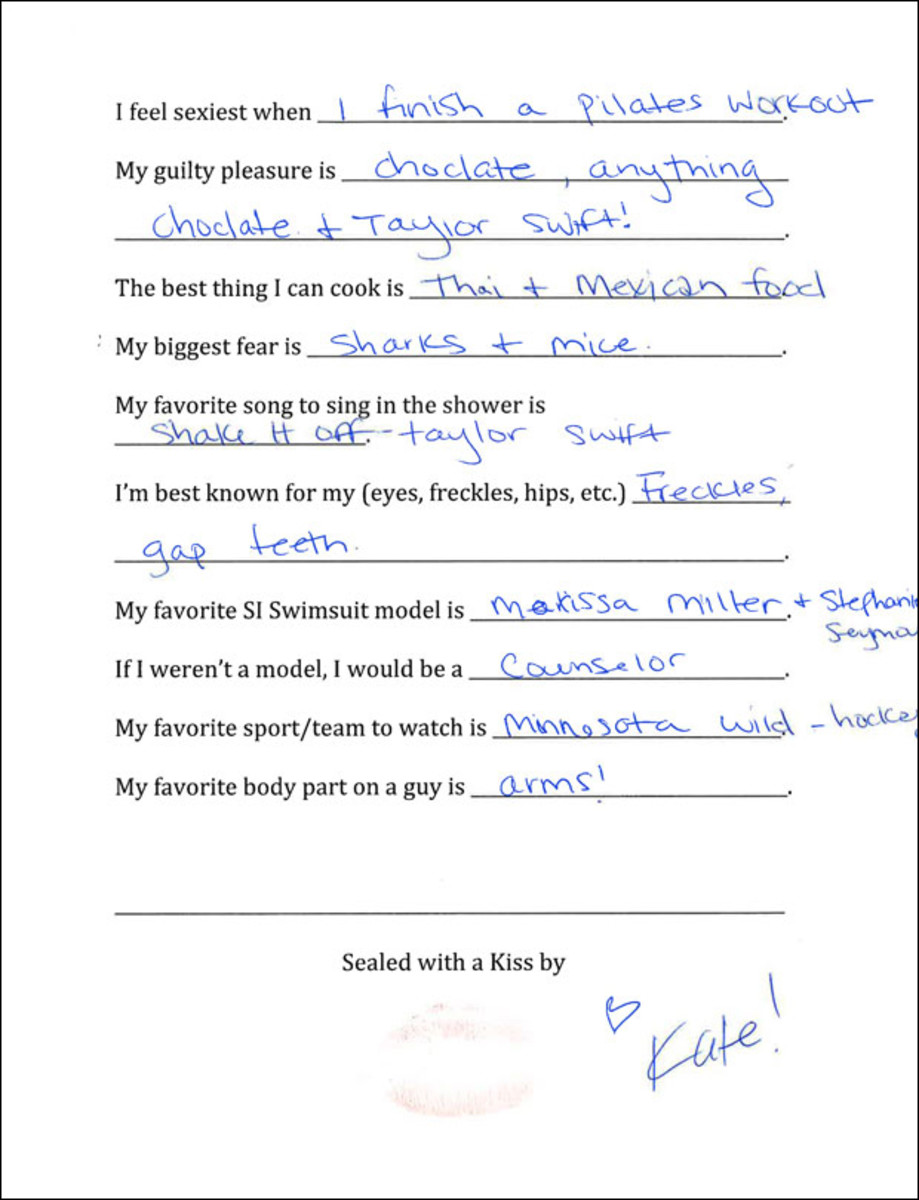 I feel sexiest when I finish a pilates workout.
My guilty pleasure is choclate, anything
choclate. + Taylor swift!.
The best thing I can cook is Thai + Mexican food
My biggest fear is Sharks + mice..
My favorite song to sing in the shower is
Shake It off.-taylor swift
I'm best known for my (eyes, freckles, hips, etc.) Freckles,
gap teeth..
My favorite SI Swimsuit model is miller. + Stephanie
Seymo
If I weren't a model, I would be a Counselor.
My favorite sport/team to watch is Minnesota wild. - hockey
My favorite body part on a guy is arms!.
Sealed with a Kiss by
Kate!